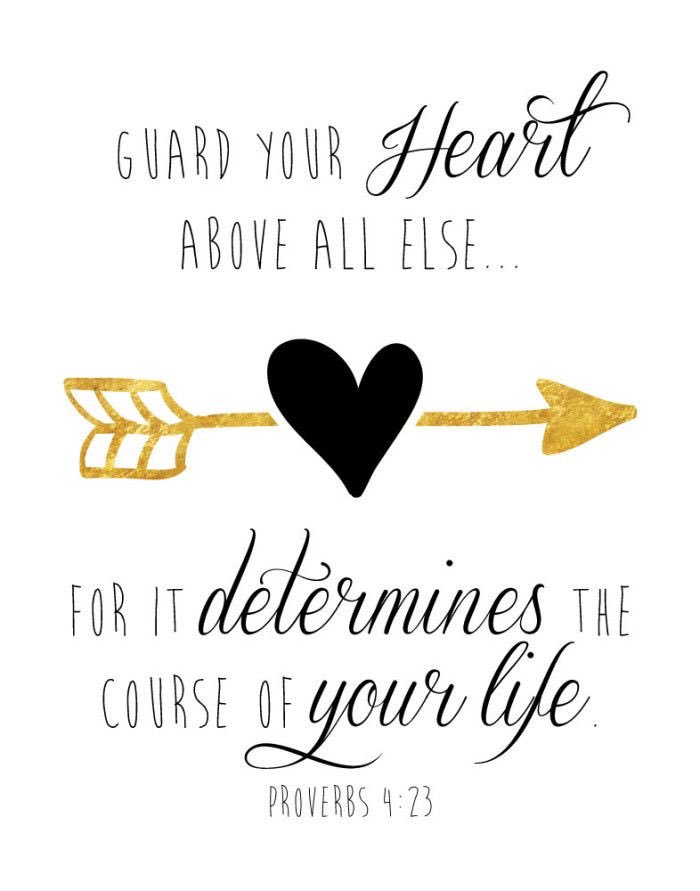 GUARD YOUR Heart
ABOVE ALL ELSE...
FOR IT determines THE
COURSE OF your life.
PROVERBS 4:23